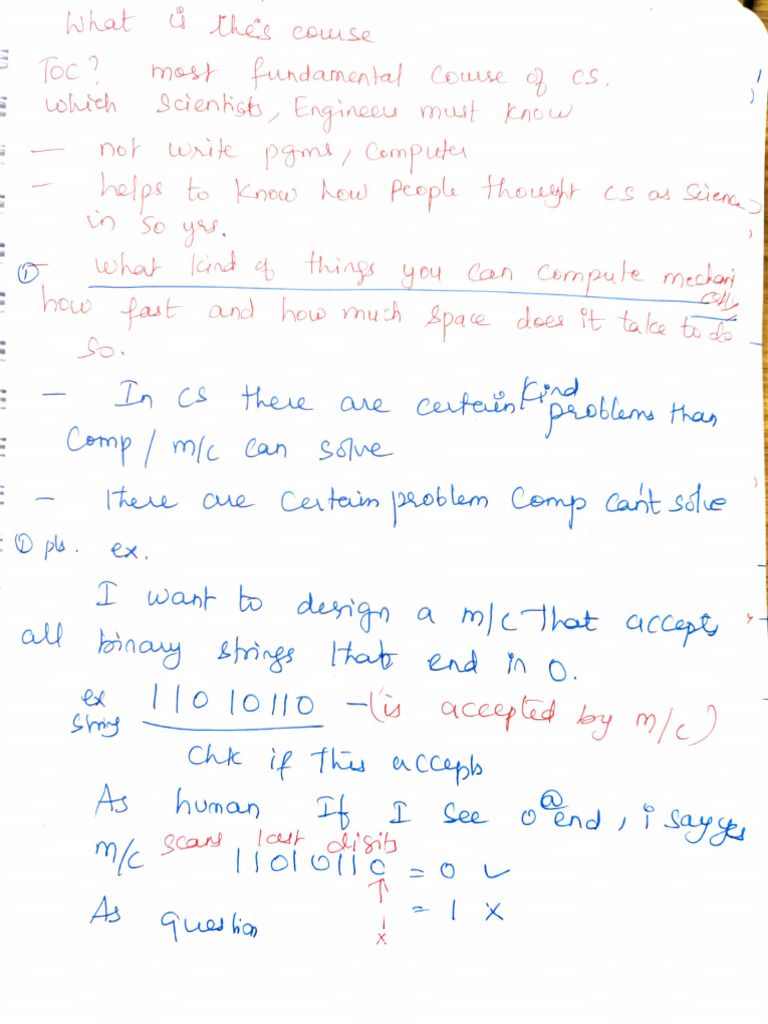 What is this course
TOC? most fundamental course of CS.
which Scientists, Engineers must know
— not write pgms, Computer
— helps to know how people thought CS as Science
in 50 yrs.
① — what kind of things you can compute mechanically
how fast and how much space does it take to do
so.
— In CS there are certain kind problems than
Comp / m/c can solve
— there are certain problem Comp can't solve
① pls. ex.
I want to design a m/c that accepts
all binary strings that end in 0.
ex string 11010110 — (is accepted by m/c)
Chk if this accepts
As human If I see 0 @ end, i say yes
m/c scans last digits
11010110 = 0 ✓
↑
As question 1 = 1 x
x